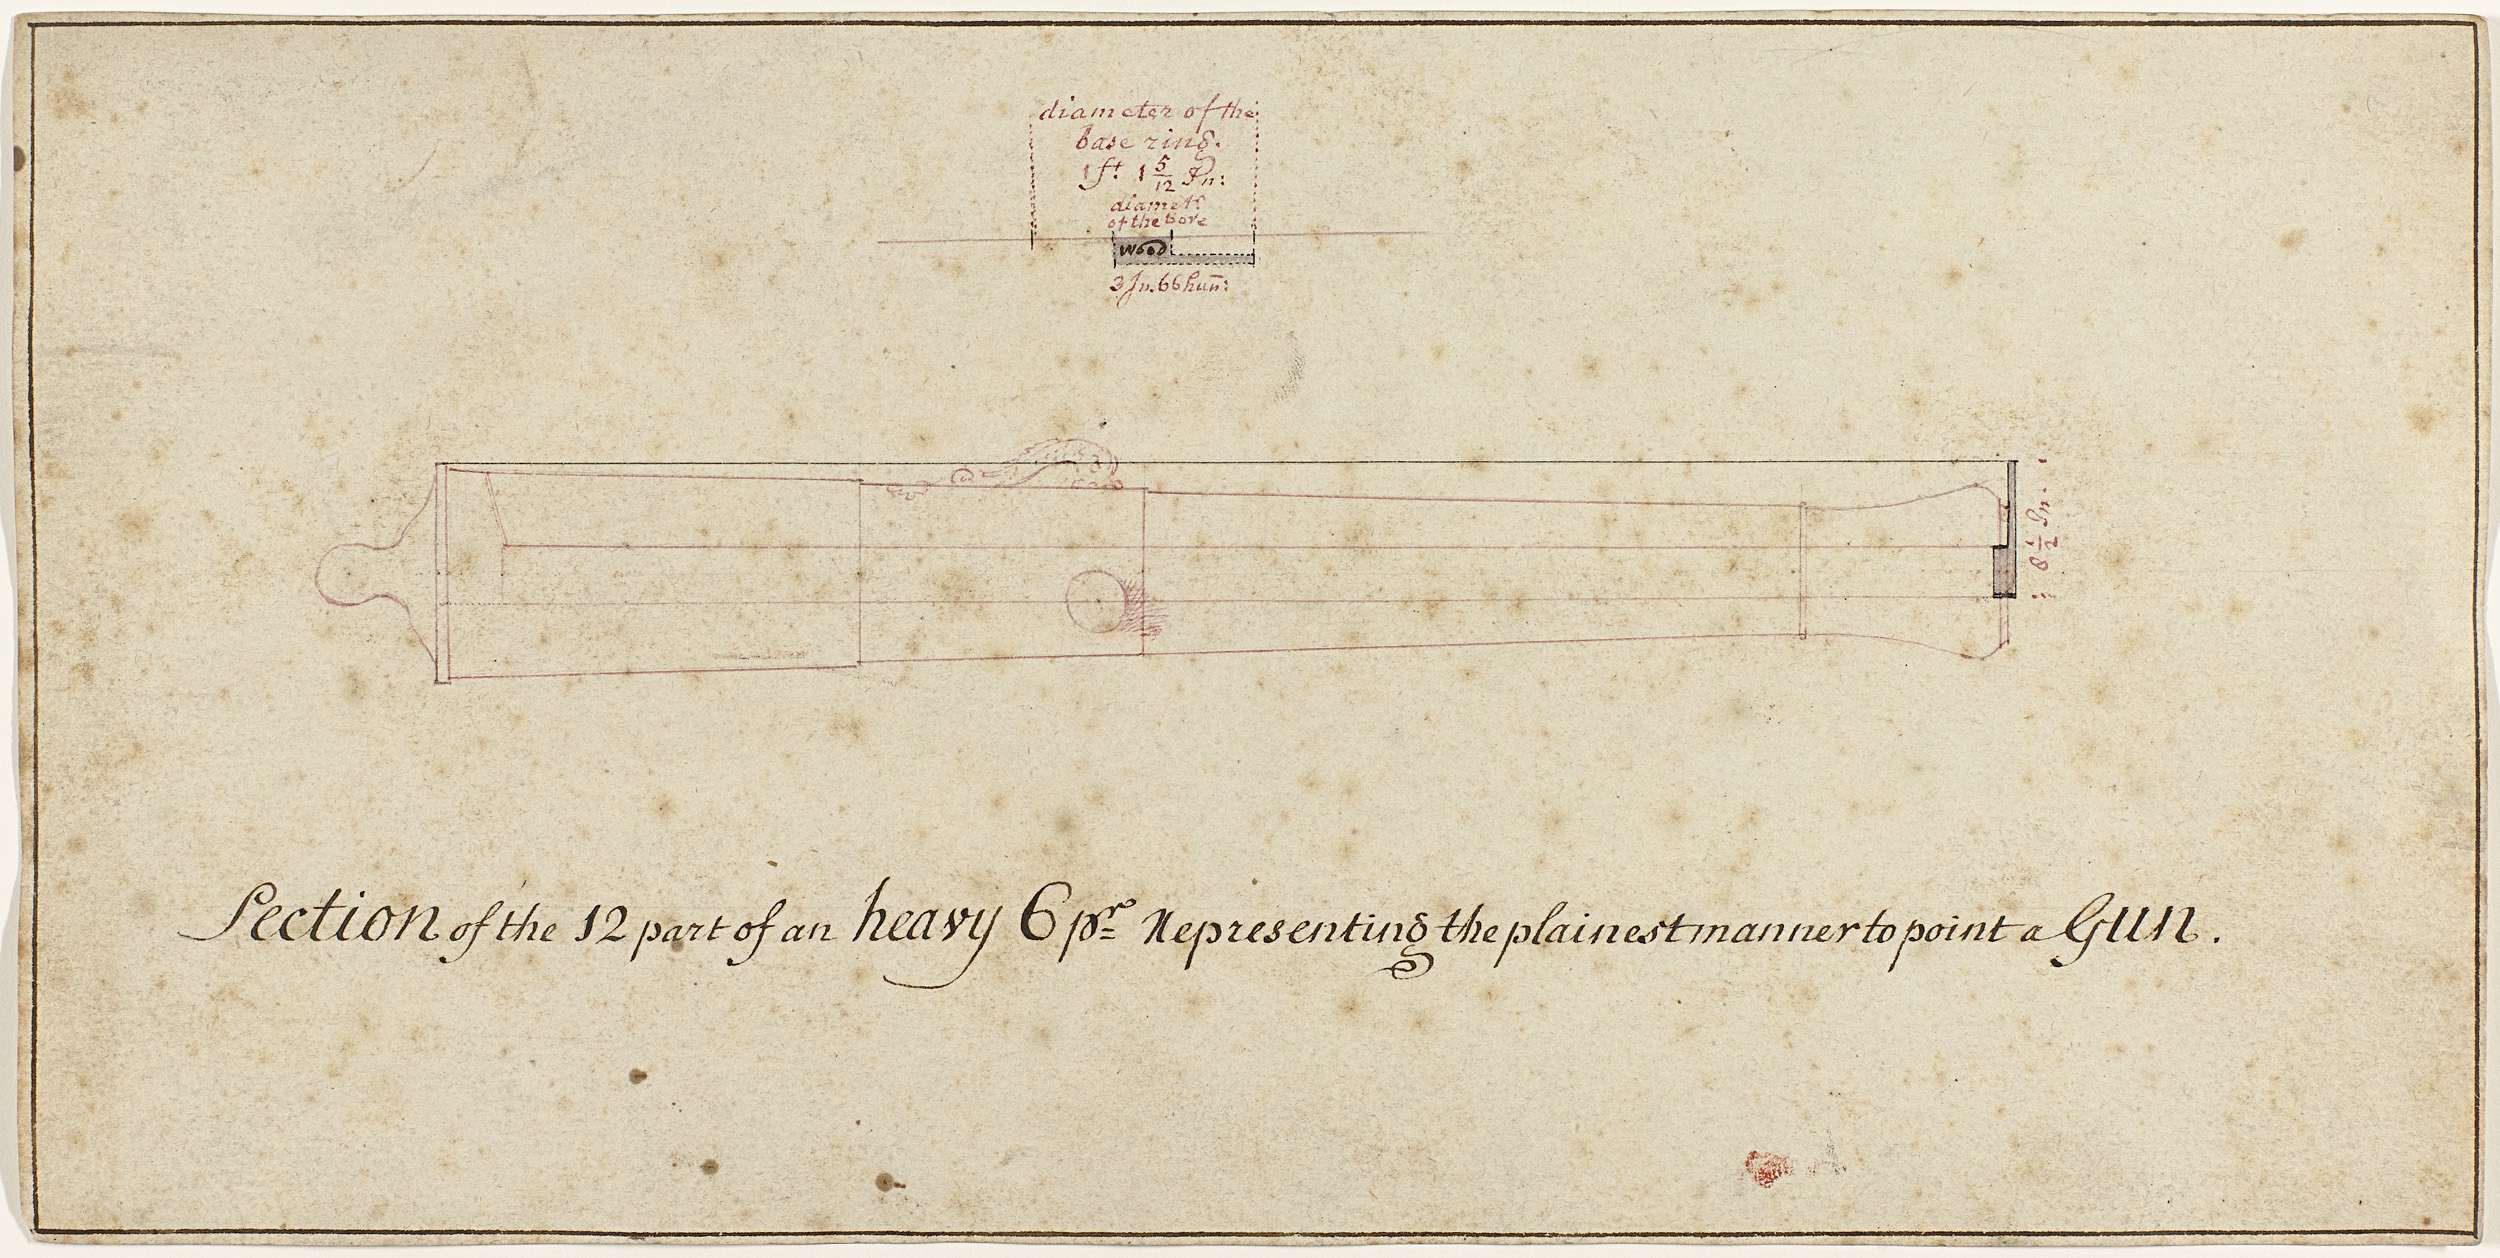 diameter of the
base ring.
1 ft. 1 5/12 In:
diametr.
of the bore
wood
3 In. 66 hun:
8 1/2 In.
Section of the 12 part of an heavy 6 pr. Representing the plainest manner to point a Gun.